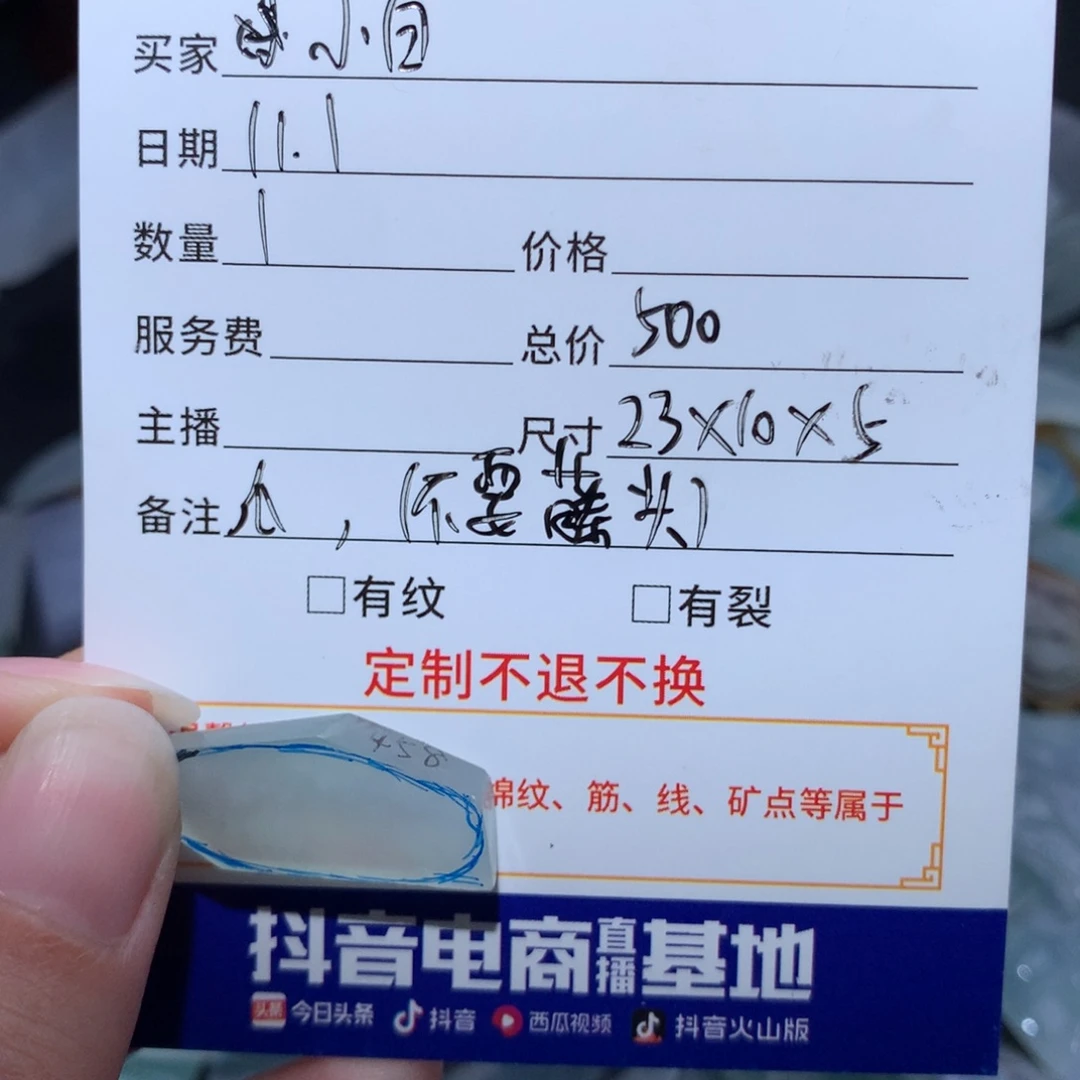 买家 小白
日期 11.1
数量 1 价格
服务费 总价 500
主播 尺寸 23×10×5
备注 (不要 头)
□有纹 □有裂
定制不退不换
458
棉纹、筋、线、矿点等属于
抖音电商直播基地
头条 今日头条 抖音 西瓜视频 抖音火山版